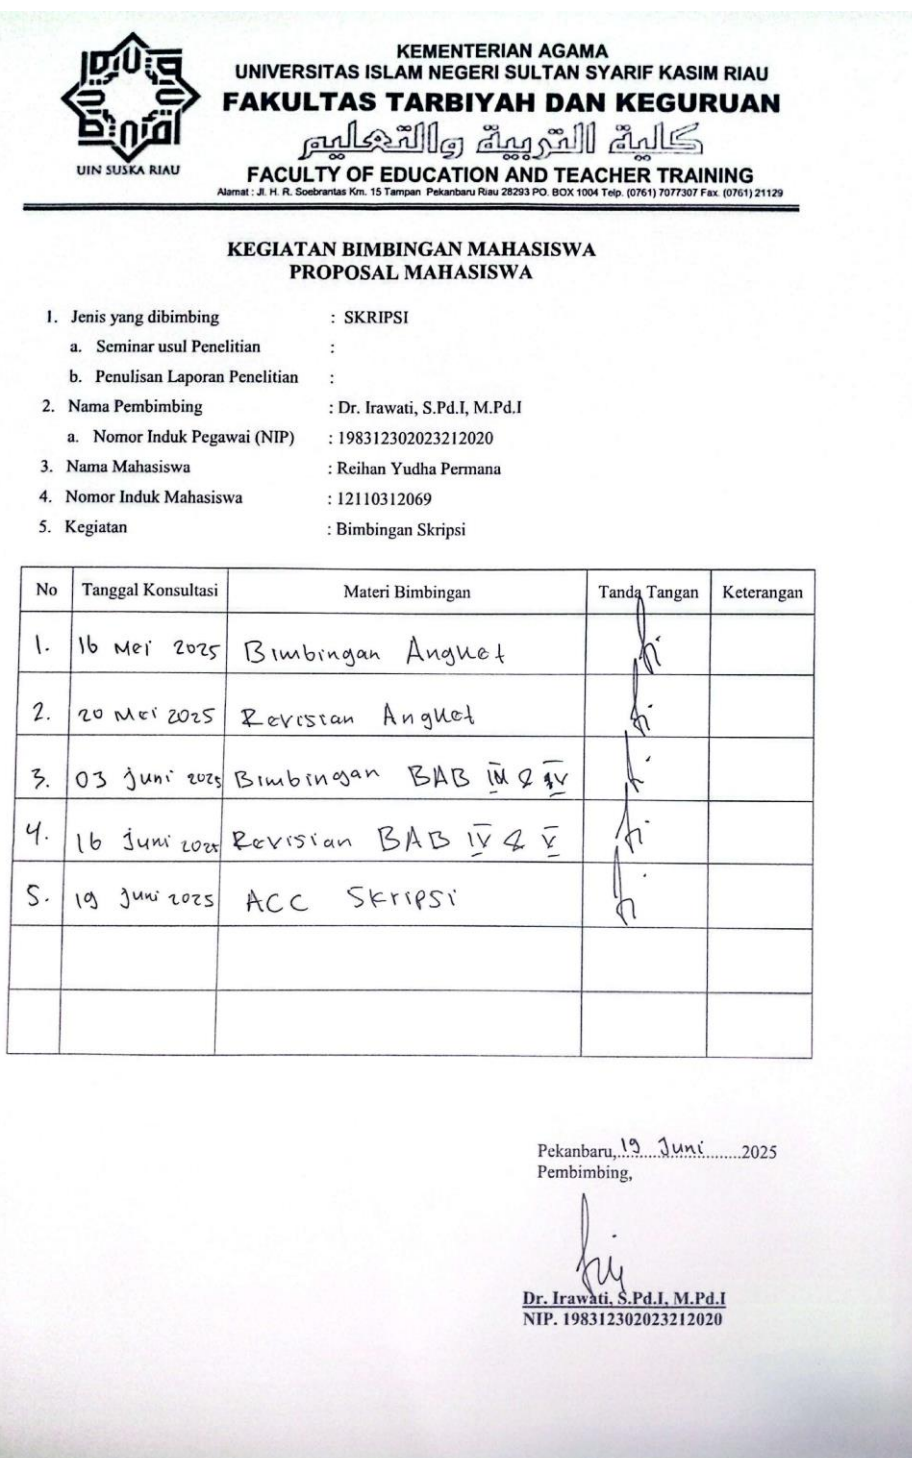 UIN SUSKA RIAU
KEMENTERIAN AGAMA
UNIVERSITAS ISLAM NEGERI SULTAN SYARIF KASIM RIAU
FAKULTAS TARBIYAH DAN KEGURUAN
كلية التربية والتعليم
FACULTY OF EDUCATION AND TEACHER TRAINING
Alamat : Jl. H. R. Soebrantas Km. 15 Tampan Pekanbaru Riau 28293 PO. BOX 1004 Telp. (0761) 7077307 Fax. (0761) 21129
KEGIATAN BIMBINGAN MAHASISWA
PROPOSAL MAHASISWA
1. Jenis yang dibimbing : SKRIPSI
a. Seminar usul Penelitian :
b. Penulisan Laporan Penelitian :
2. Nama Pembimbing : Dr. Irawati, S.Pd.I, M.Pd.I
a. Nomor Induk Pegawai (NIP) : 198312302023212020
3. Nama Mahasiswa : Reihan Yudha Permana
4. Nomor Induk Mahasiswa : 12110312069
5. Kegiatan : Bimbingan Skripsi
No Tanggal Konsultasi Materi Bimbingan Tanda Tangan Keterangan
1. 16 Mei 2025 Bimbingan Angket
2. 20 Mei 2025 Revisian Angket
3. 03 Juni 2025 Bimbingan BAB & IV
4. 16 Juni 2025 Revisian BAB IV & V
5. 19 Juni 2025 ACC Skripsi
Pekanbaru, 19 Juni 2025
Pembimbing,
Dr. Irawati, S.Pd.I, M.Pd.I
NIP. 198312302023212020